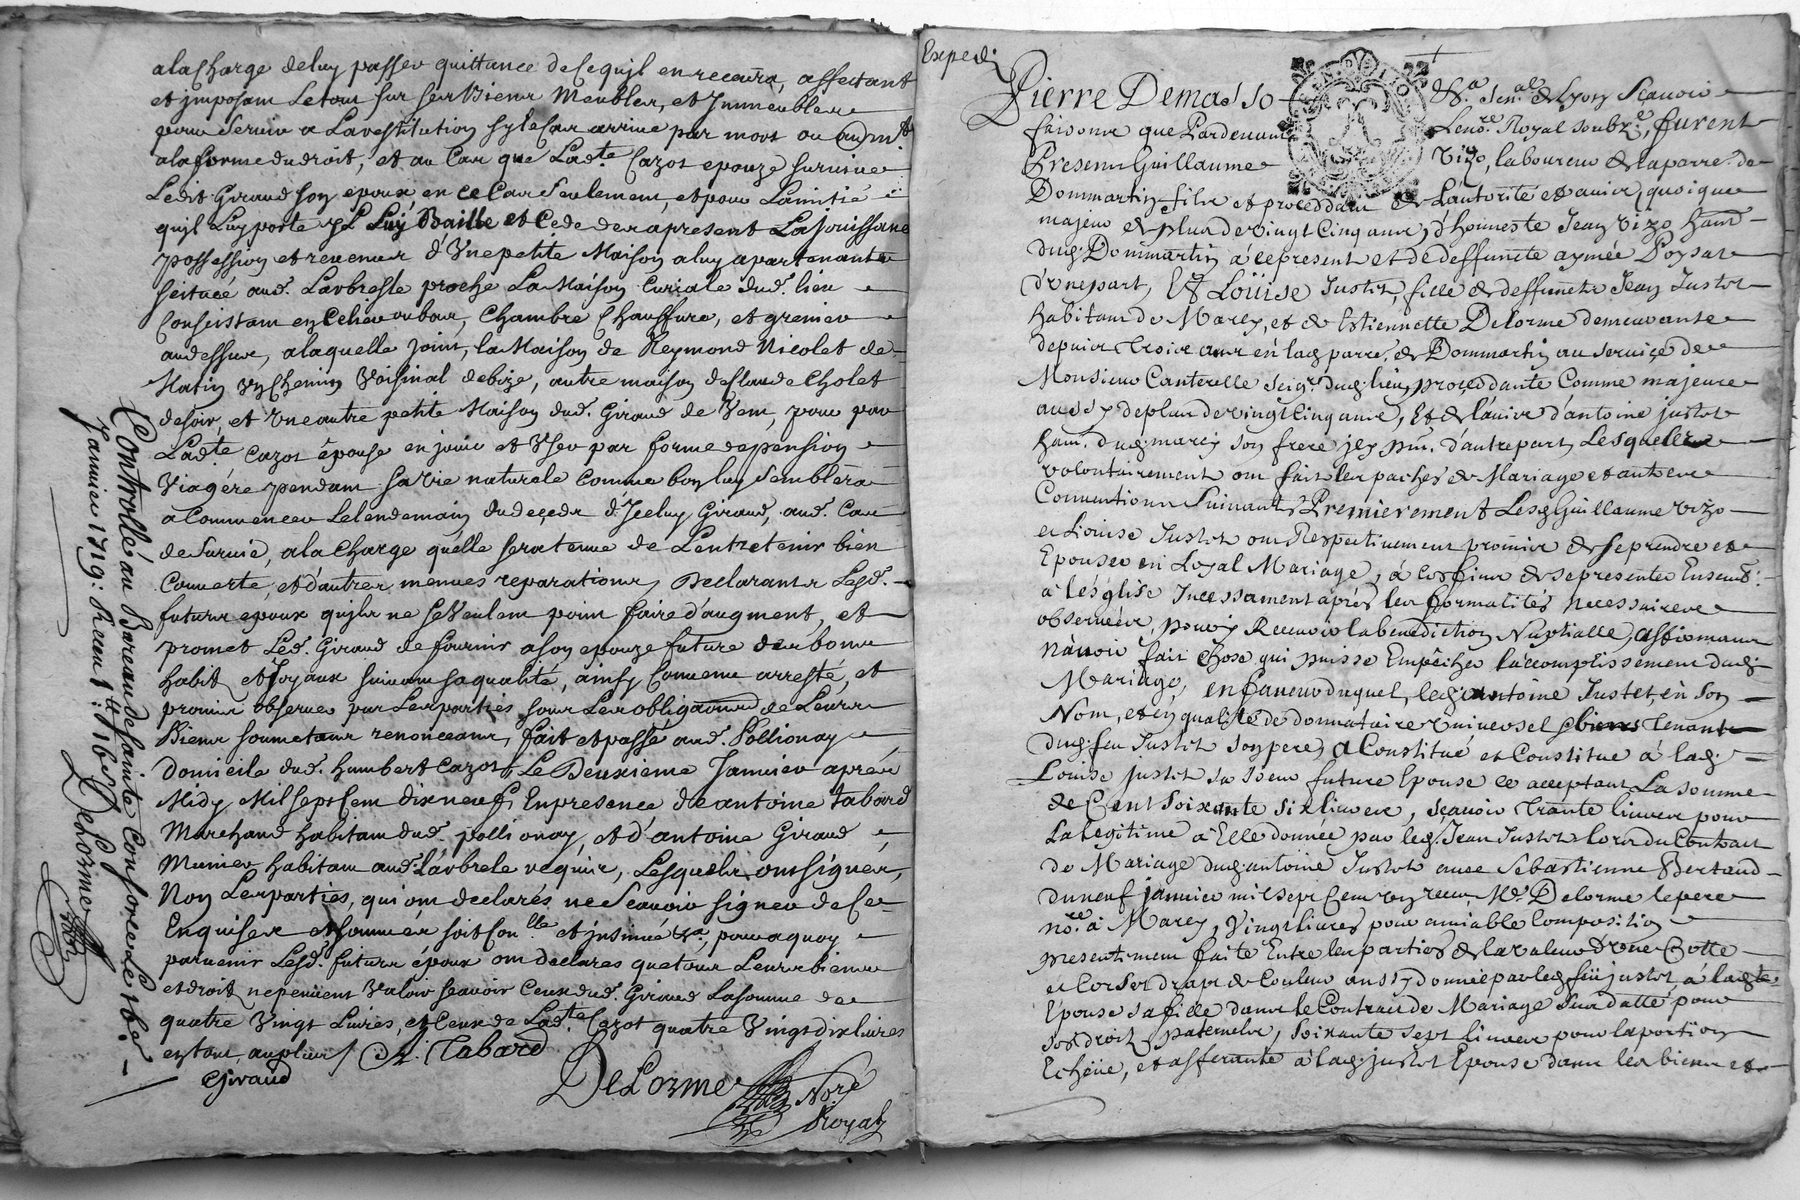 a la charge de luy passer quittance de ce quil en recevra, affectant
et imposant le tout sur ses biens meubles, et Immeubles
pour servir a La restitution sy le cas arrive par mort ou aud.nt
a la forme du droit, et au cas que Ladte Cazot epouze survive
Ledit Giraud son epoux, en ce cas seulement, et pour Lamitié
quil Luy porte Il Luy Baille et Cede des apresent La jouissance
possession et revenus d'Une petite Maison a luy apartenante
scituée aud. Larbresle proche La Maison Curiale dud. lieu
Consistam en Celier ou bas, Chambre Chauffure, et grenier
au dessus, a laquelle joint, la Maison de Reymond Nicolet de
Matin Un Chemin Voisinal de bize, autre maison de Claude Cholet
de soir, et Une autre petite Maison dud. Giraud de Vent, pour par
Ladte Cazot épouse en jouir et User par forme de pension
Viagére pendant sa vie naturelle Comme bon luy semblera
a Commencer Le lendemain du decedz d'Iceluy Giraud, aud. Cas
de survie, a la charge quelle sera tenue de L'entretenir bien
Couverte, et d'autres menues reparations, Declarants Lesd.
futurs epoux quils ne se Veulent point faire d'augment, et
promet Led. Giraud de fournir a son epouze future des bons
habits et Joyaux suivant sa qualité, ainsy Convenu arresté, et
promis observer par Les parties sous Les obligaons de Leurs
Biens soumetans renonceans, fait et passé aud. Pollionay
domicile dud. humbert Cazot, Le Deuxieme Janvier aprés
Midy Mil sept Cent dix neuf, En presence de antoine tabard
Marchand habitam dud. pollionay, et d'antoine Giraud,
Munier habitam aud. Larbrele requis, Lesquels ont signer,
Non Les parties, qui om declarés ne Scavoir signer de Ce
Enquises et sommés soit Con.lle et jnsinué &a, pour a quoy
parvenir Lesd. futurs époux om declares que tous Leurs biens
et droits ne peuvent Valoir scavoir Ceux dud. Giraud La somme de
quatre Vingt Livres, et Ceux de Ladte Cazot quatre Vingt dix livres
en tout, au plus / A. Tabard
Giraud
DeLorme Nore
Royal
Controllé au Bureau de Sainte Consorce Le 16e
Janvier 1719. Receu
Delorme
Exped.
Pierre Demasso &a. Sen.al de Lyon Scavoir
faisons que Pardevant Le no.re Royal soubz.é, furent
Presens Guillaume Vizo, laboureur de la parre. de
Dommartin fils et proceddant de L'autorité et avis, quoique
majeur de plus de vingt Cinq ans, d'honneste Jean Vizo hant
dud. Dommartin á ce present et de deffuncte aymée Poysat
d'une part, Et Loüise Justet, fille de deffuncts Jean Justet
habitant de Marcy, et de Estiennette Delorme demeurante
depuis Trois ans en lad. parre. de Dommartin au service de
Monsieur Canterelle Seigr. dud. lieu, procedante Comme majeure
aussy de plus de vingt Cinq ans, Et de l'avis d'antoine justet
hant. dud. marcy son frere jcy pnt. d'autre part, Lesquels
volontairement ont fait les paches de Mariage et autres
Conventions Suivants, Premierement Lesd. Guillaume vizo
et Louise Justet ont Respectivement promis de se prendre et
Epouser en Loyal Mariage, á ces fins de se presenter Ensemb.
á léglise Incessament aprés les formalités necessaires
observées, pour y Recevoir la benediction Nuptialle, affirmans
n'avoir fait Chose qui puisse Empêcher l'accomplissement dud.
Mariage, en faveur duquel, led. antoine Justet, en son
Nom, et en qualité de donnataire universel biens tenant
dud. feu Justet son pere, a Constitué et Constitue á lad.
Louise justet sa soeur future Epouse ce acceptant La somme
de Cent soixante six livres, sçavoir trante livres pour
la legitime á Elle donnée par led. Jean Justet lors du Contrat
de Mariage dud. antoine Justet avec Sebastienne Bertaud
du neuf janvier mil sept Cent receu Me. Delorme le pere
no.re á Marcy, Vingt livres pour amiable Composition
presentement faite Entre les parties de la valeur d'une Cotte
et Corset drap de Couleur aussy donnée par led. feu justet á ladte.
Epouse sa fille dans le Contrat de Mariage sus datté pour
ses droits paternels, soixante sept livres pour la portion
Echëue, et afferante á lad. justet Epouse dans les biens et